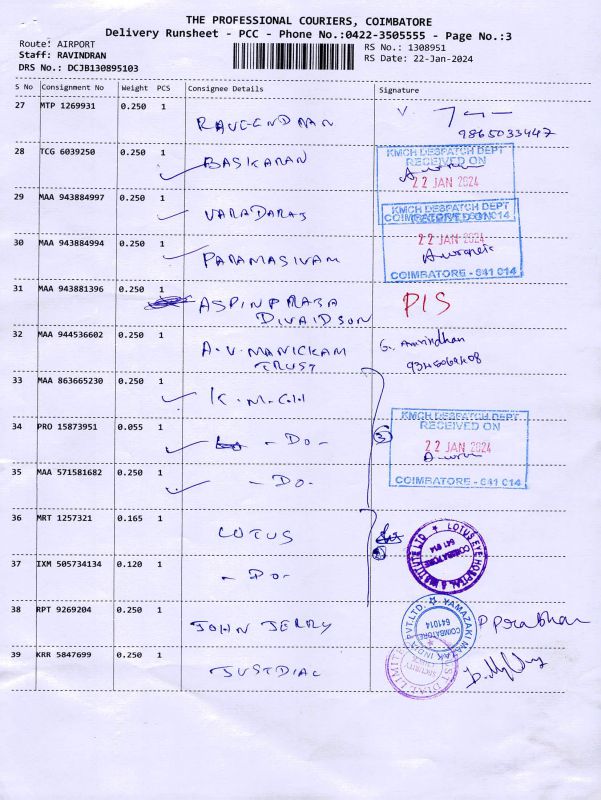 THE PROFESSIONAL COURIERS, COIMBATORE
Delivery Runsheet - PCC - Phone No.:0422-3505555 - Page No.:3
Route: AIRPORT
RS No.: 1308951
Staff: RAVINDRAN
RS Date: 22-Jan-2024
DRS No.: DCJB130895103
S No Consignment No Weight PCS Consignee Details Signature
27 MTP 1269931 0.250 1 RAVEENDRAN
9865033447
28 TCG 6039250 0.250 1 BASKARAN
KMCH DESPATCH DEPT
RECEIVED ON
22 JAN 2024
29 MAA 943884997 0.250 1 VARADARAJ
KMCH DESPATCH DEPT
COIMBATORE - 641 014
30 MAA 943884994 0.250 1 PARAMASIVAM
22 JAN 2024
COIMBATORE - 641 014
31 MAA 943881396 0.250 1 ASPINPRABA
DIVAIDSON
PIS
32 MAA 944536602 0.250 1 A.V. MANICKAM
TRUST
33 MAA 863665230 0.250 1 K.M.C.H
34 PRO 15873951 0.055 1 - DO -
3
KMCH DESPATCH DEPT
RECEIVED ON
22 JAN 2024
35 MAA 571581682 0.250 1 - DO -
COIMBATORE - 641 014
36 MRT 1257321 0.165 1 LOTUS
LOTUS EYE HOSPITAL & INSTITUTE LTD
COIMBATORE
641 014
37 IXM 505734134 0.120 1 - DO -
38 RPT 9269204 0.250 1 JOHN JERRY
YAMAZAKI MAZAK INDIA PVT LTD.
COIMBATORE
641014
P Prabhan
39 KRR 5847699 0.250 1 JUSTDIAL
JUST DIAL LIMITED
SECURITY